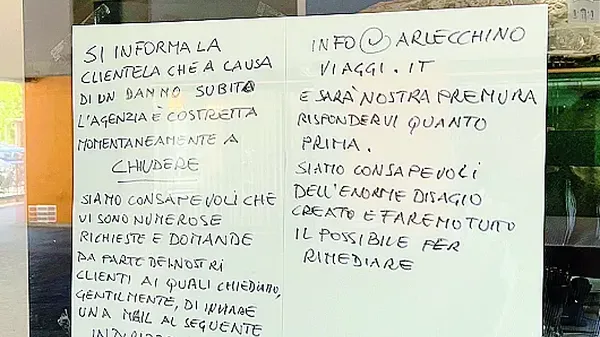 SI INFORMA LA
CLIENTELA CHE A CAUSA
DI UN DANNO SUBITO
L'AGENZIA È COSTRETTA
MOMENTANEAMENTE A
CHIUDERE
SIAMO CONSAPEVOLI CHE
VI SONO NUMEROSE
RICHIESTE E DOMANDE
DA PARTE DEI NOSTRI
CLIENTI AI QUALI CHIEDIAMO,
GENTILMENTE, DI INVIARE
UNA MAIL AL SEGUENTE
INDIRIZZO
INFO@ARLECCHINO
VIAGGI.IT
E SARÀ NOSTRA PREMURA
RISPONDERVI QUANTO
PRIMA.
SIAMO CONSAPEVOLI
DELL'ENORME DISAGIO
CREATO E FAREMO TUTTO
IL POSSIBILE PER
RIMEDIARE